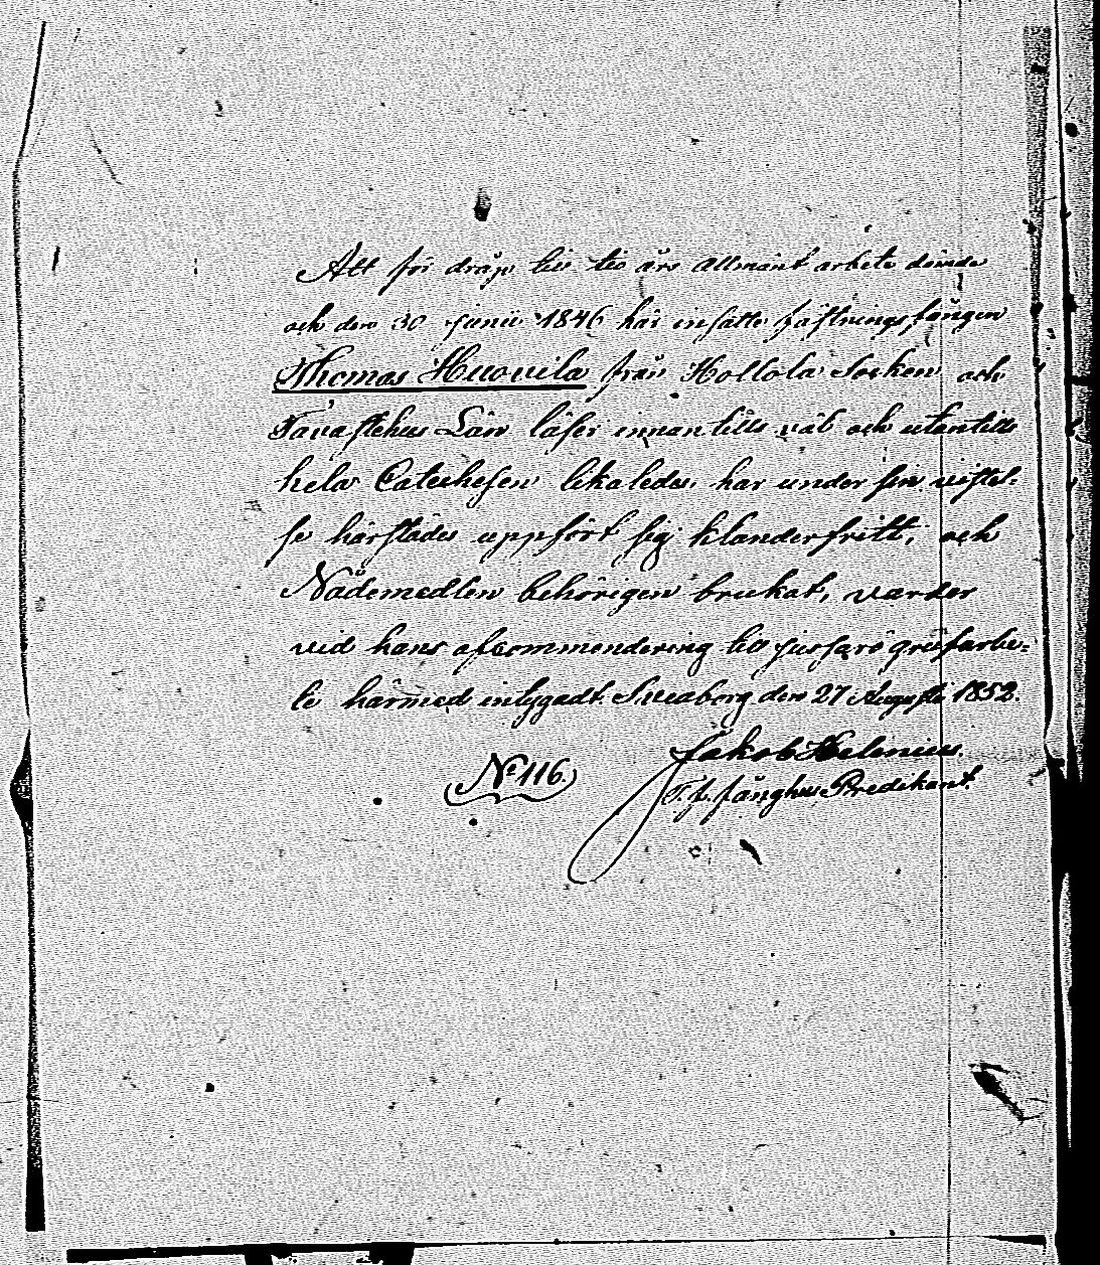 Att för dråp till tio års allmänt arbete dömde
och den 30 Junii 1846 här insatte fästningsfången
Thomas Huovila från Hollola Socken och
Tavastehus Län läser innantill väl och utantill
hela Catechesen likaledes, har under sin vistel-
se härstädes uppfört sig klanderfritt, och
Nådemedlen behörigen brukat, varder
vid hans afcommendering till Jussarö grufarbe-
te härmed intygadt. Sveaborg den 27 Augusti 1852.
Jakob Helenius.
No 116.
T. f. fånghus Predikant.